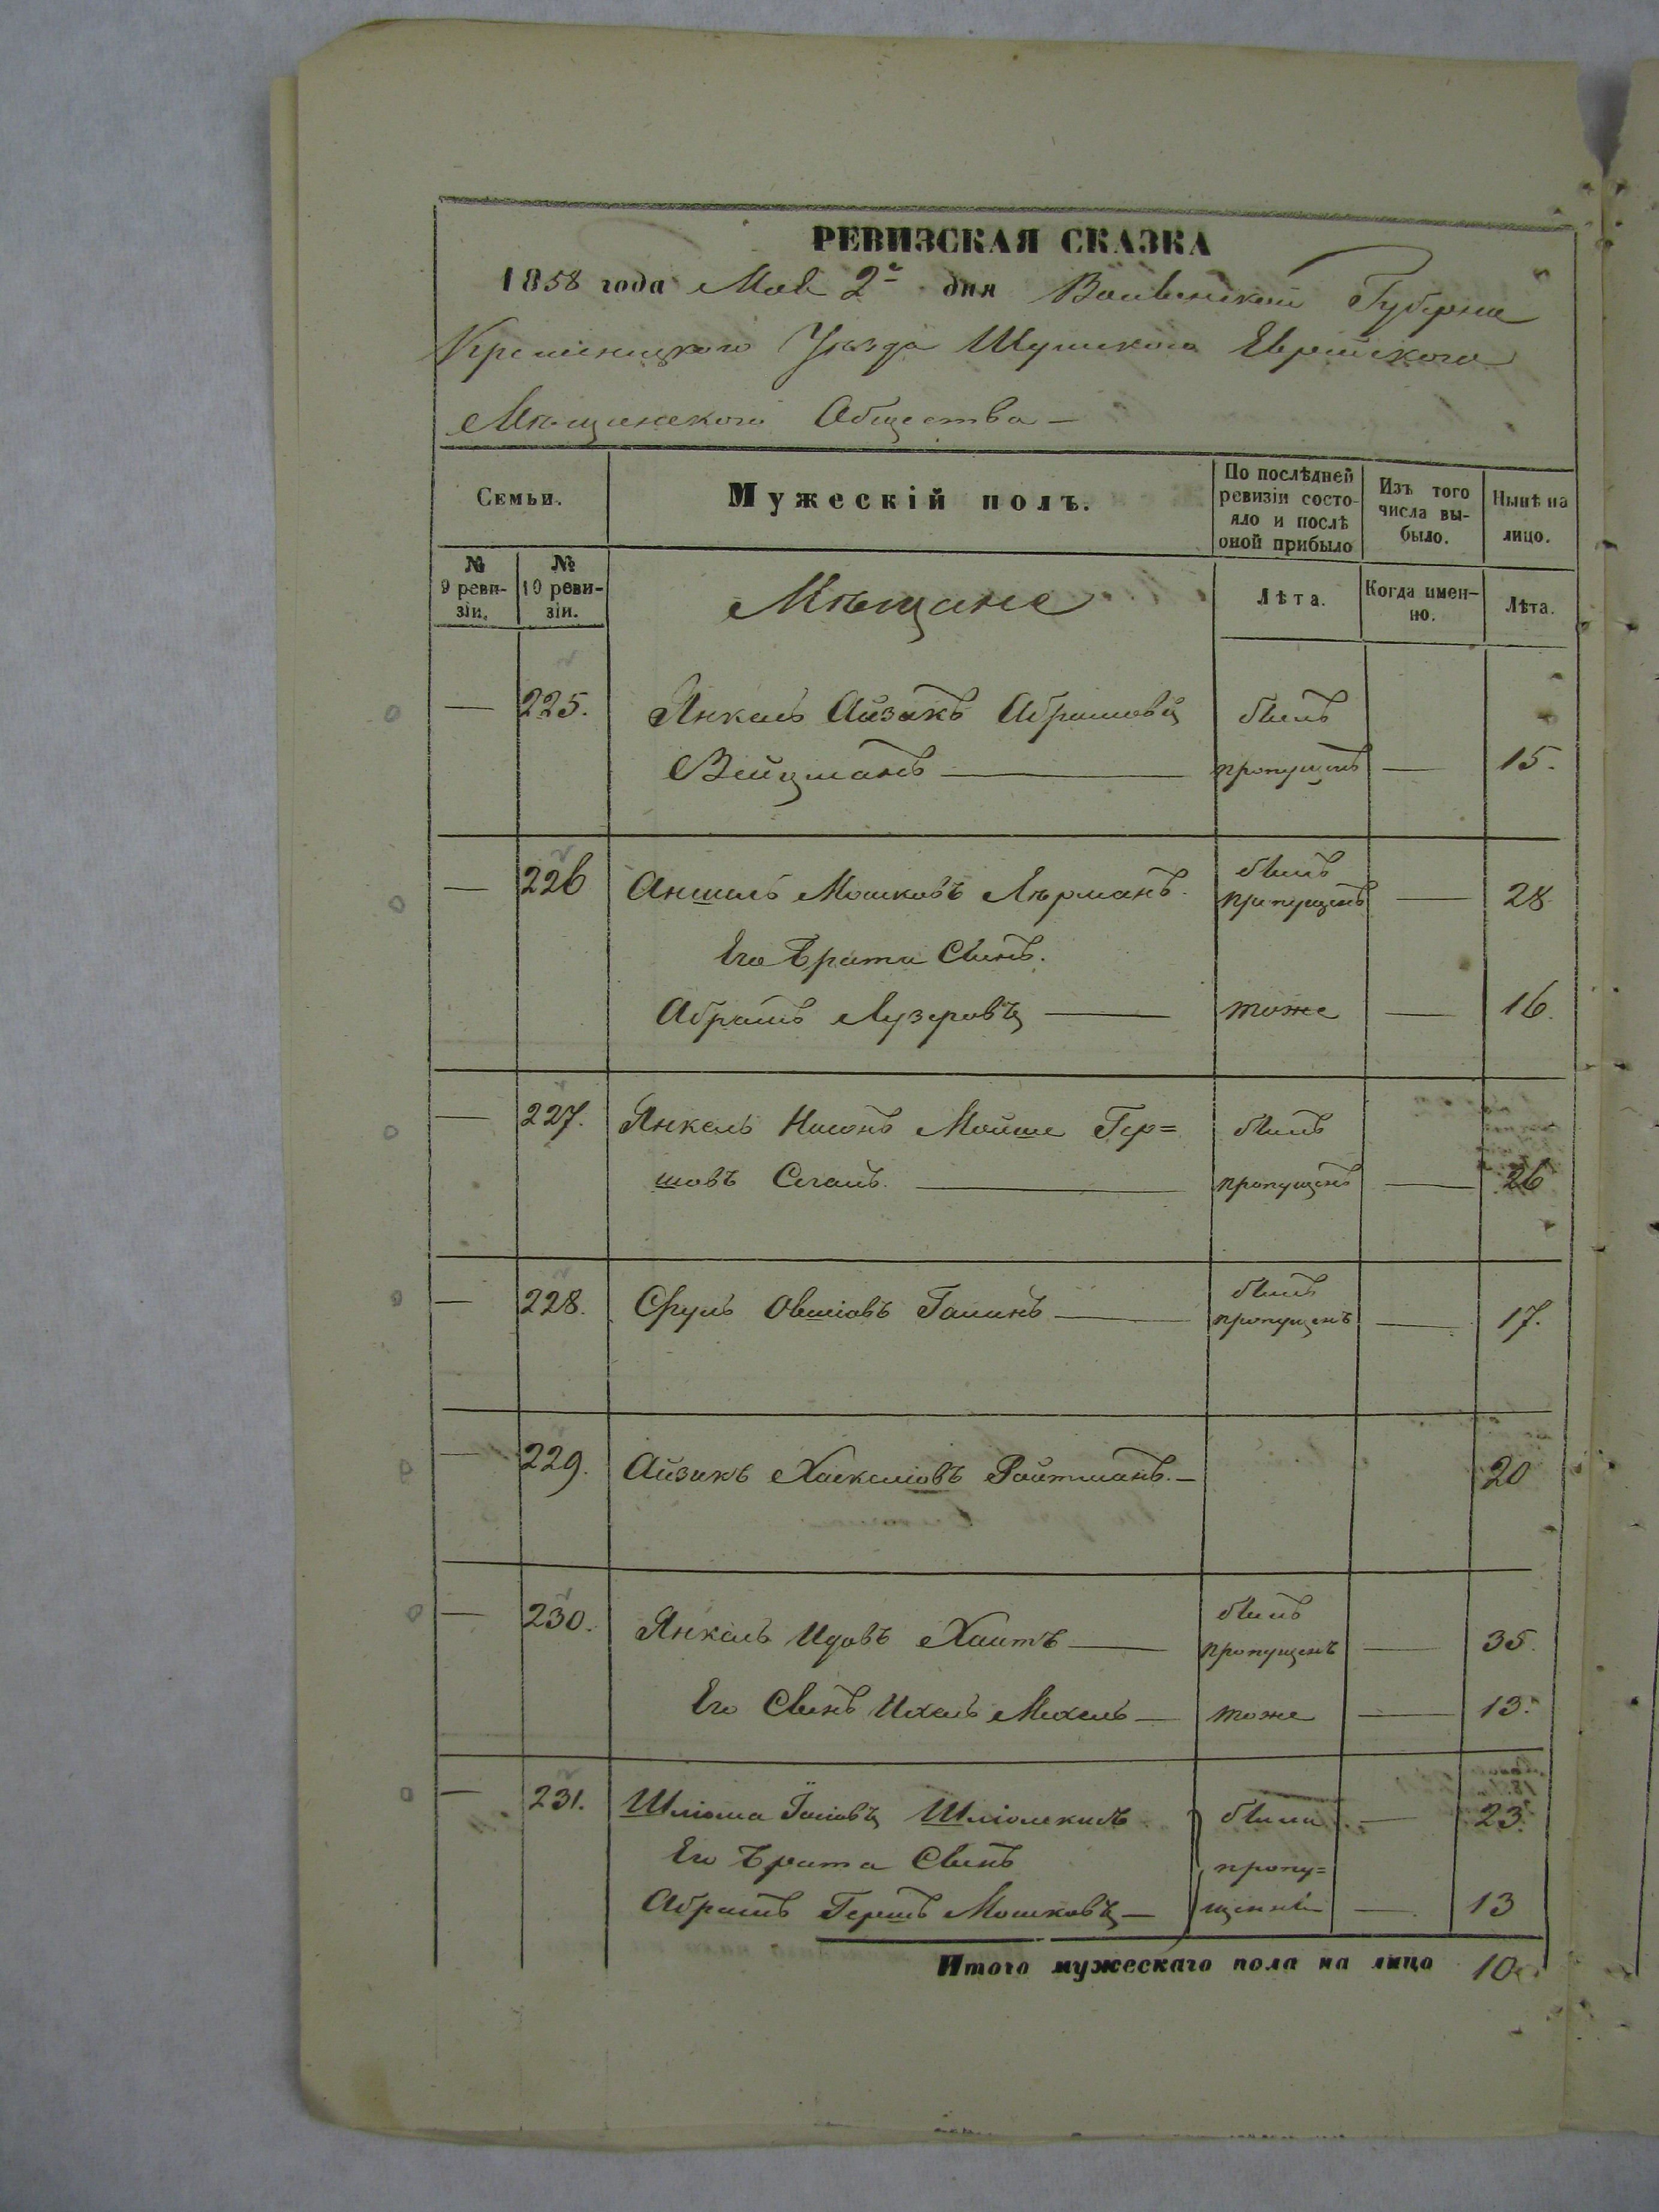 РЕВИЗСКАЯ СКАЗКА
1858 года Мая 2го дня Волынской Губернии
Кременецкого Уѣзда Шумского Еврейского
Мѣщанского Общества —
Семьи.
Мужескій полъ.
По послѣдней ревизіи состо-
яло и послѣ оной прибыло
Изъ того числа вы-
было.
Нынѣ на лицо.
№ 9 реви-
зіи.
№ 10 реви-
зіи.
Мѣщане
Лѣта.
Когда имен-
но.
Лѣта.
— 225. Янкель Айзикъ Абрамовъ былъ
Вейцманъ — пропущенъ — 15.
— 226 Аншель Мошковъ Лерманъ былъ пропущенъ — 28
Его Брата Сынъ.
Абрамъ Лузеровъ — тоже — 16.
— 227. Янкель Мойше Гер= былъ
шовъ Сегалъ. — пропущенъ — 26
— 228. Сруль Овшіовъ — былъ пропущенъ — 17.
— 229. Айзикъ Хаскеліовъ Ройтманъ. — 20
— 230. Янкель Идовъ Хаитъ — былъ пропущенъ — 35.
Его Сынъ Ихель Михель — тоже — 13.
— 231. Шліома Шліомкисъ были — 23.
Его Брата Сынъ пропу=
Абрамъ Гершъ Мошковъ — щенны — 13
Итого мужескаго пола на лицо 10